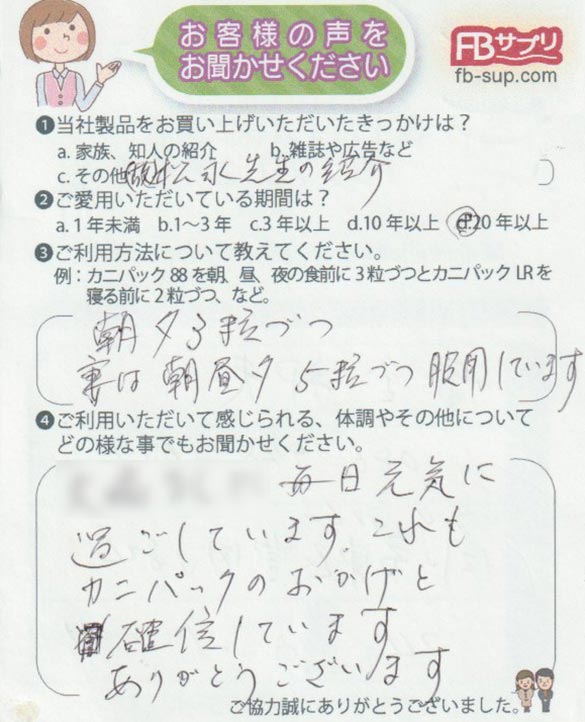 お客様の声を
お聞かせください
FBサプリ
fb-sup.com
❶当社製品をお買い上げいただいたきっかけは？
a. 家族、知人の紹介　b. 雑誌や広告など
c. その他 松永先生の紹介 )
❷ご愛用いただいている期間は？
a.1年未満 b.1～3年 c.3年以上 d.10年以上 d.20年以上
❸ご利用方法について教えてください。
例：カニパック88を朝、昼、夜の食前に3粒づつとカニパックLRを
寝る前に2粒づつ、など。
朝夕3粒づつ
妻は朝昼夕5粒づつ服用しています
❹ご利用いただいて感じられる、体調やその他について
どの様な事でもお聞かせください。
毎日元気に
過ごしています これも
カニパックのおかげと
確信しています
ありがとうございます
ご協力誠にありがとうございました。